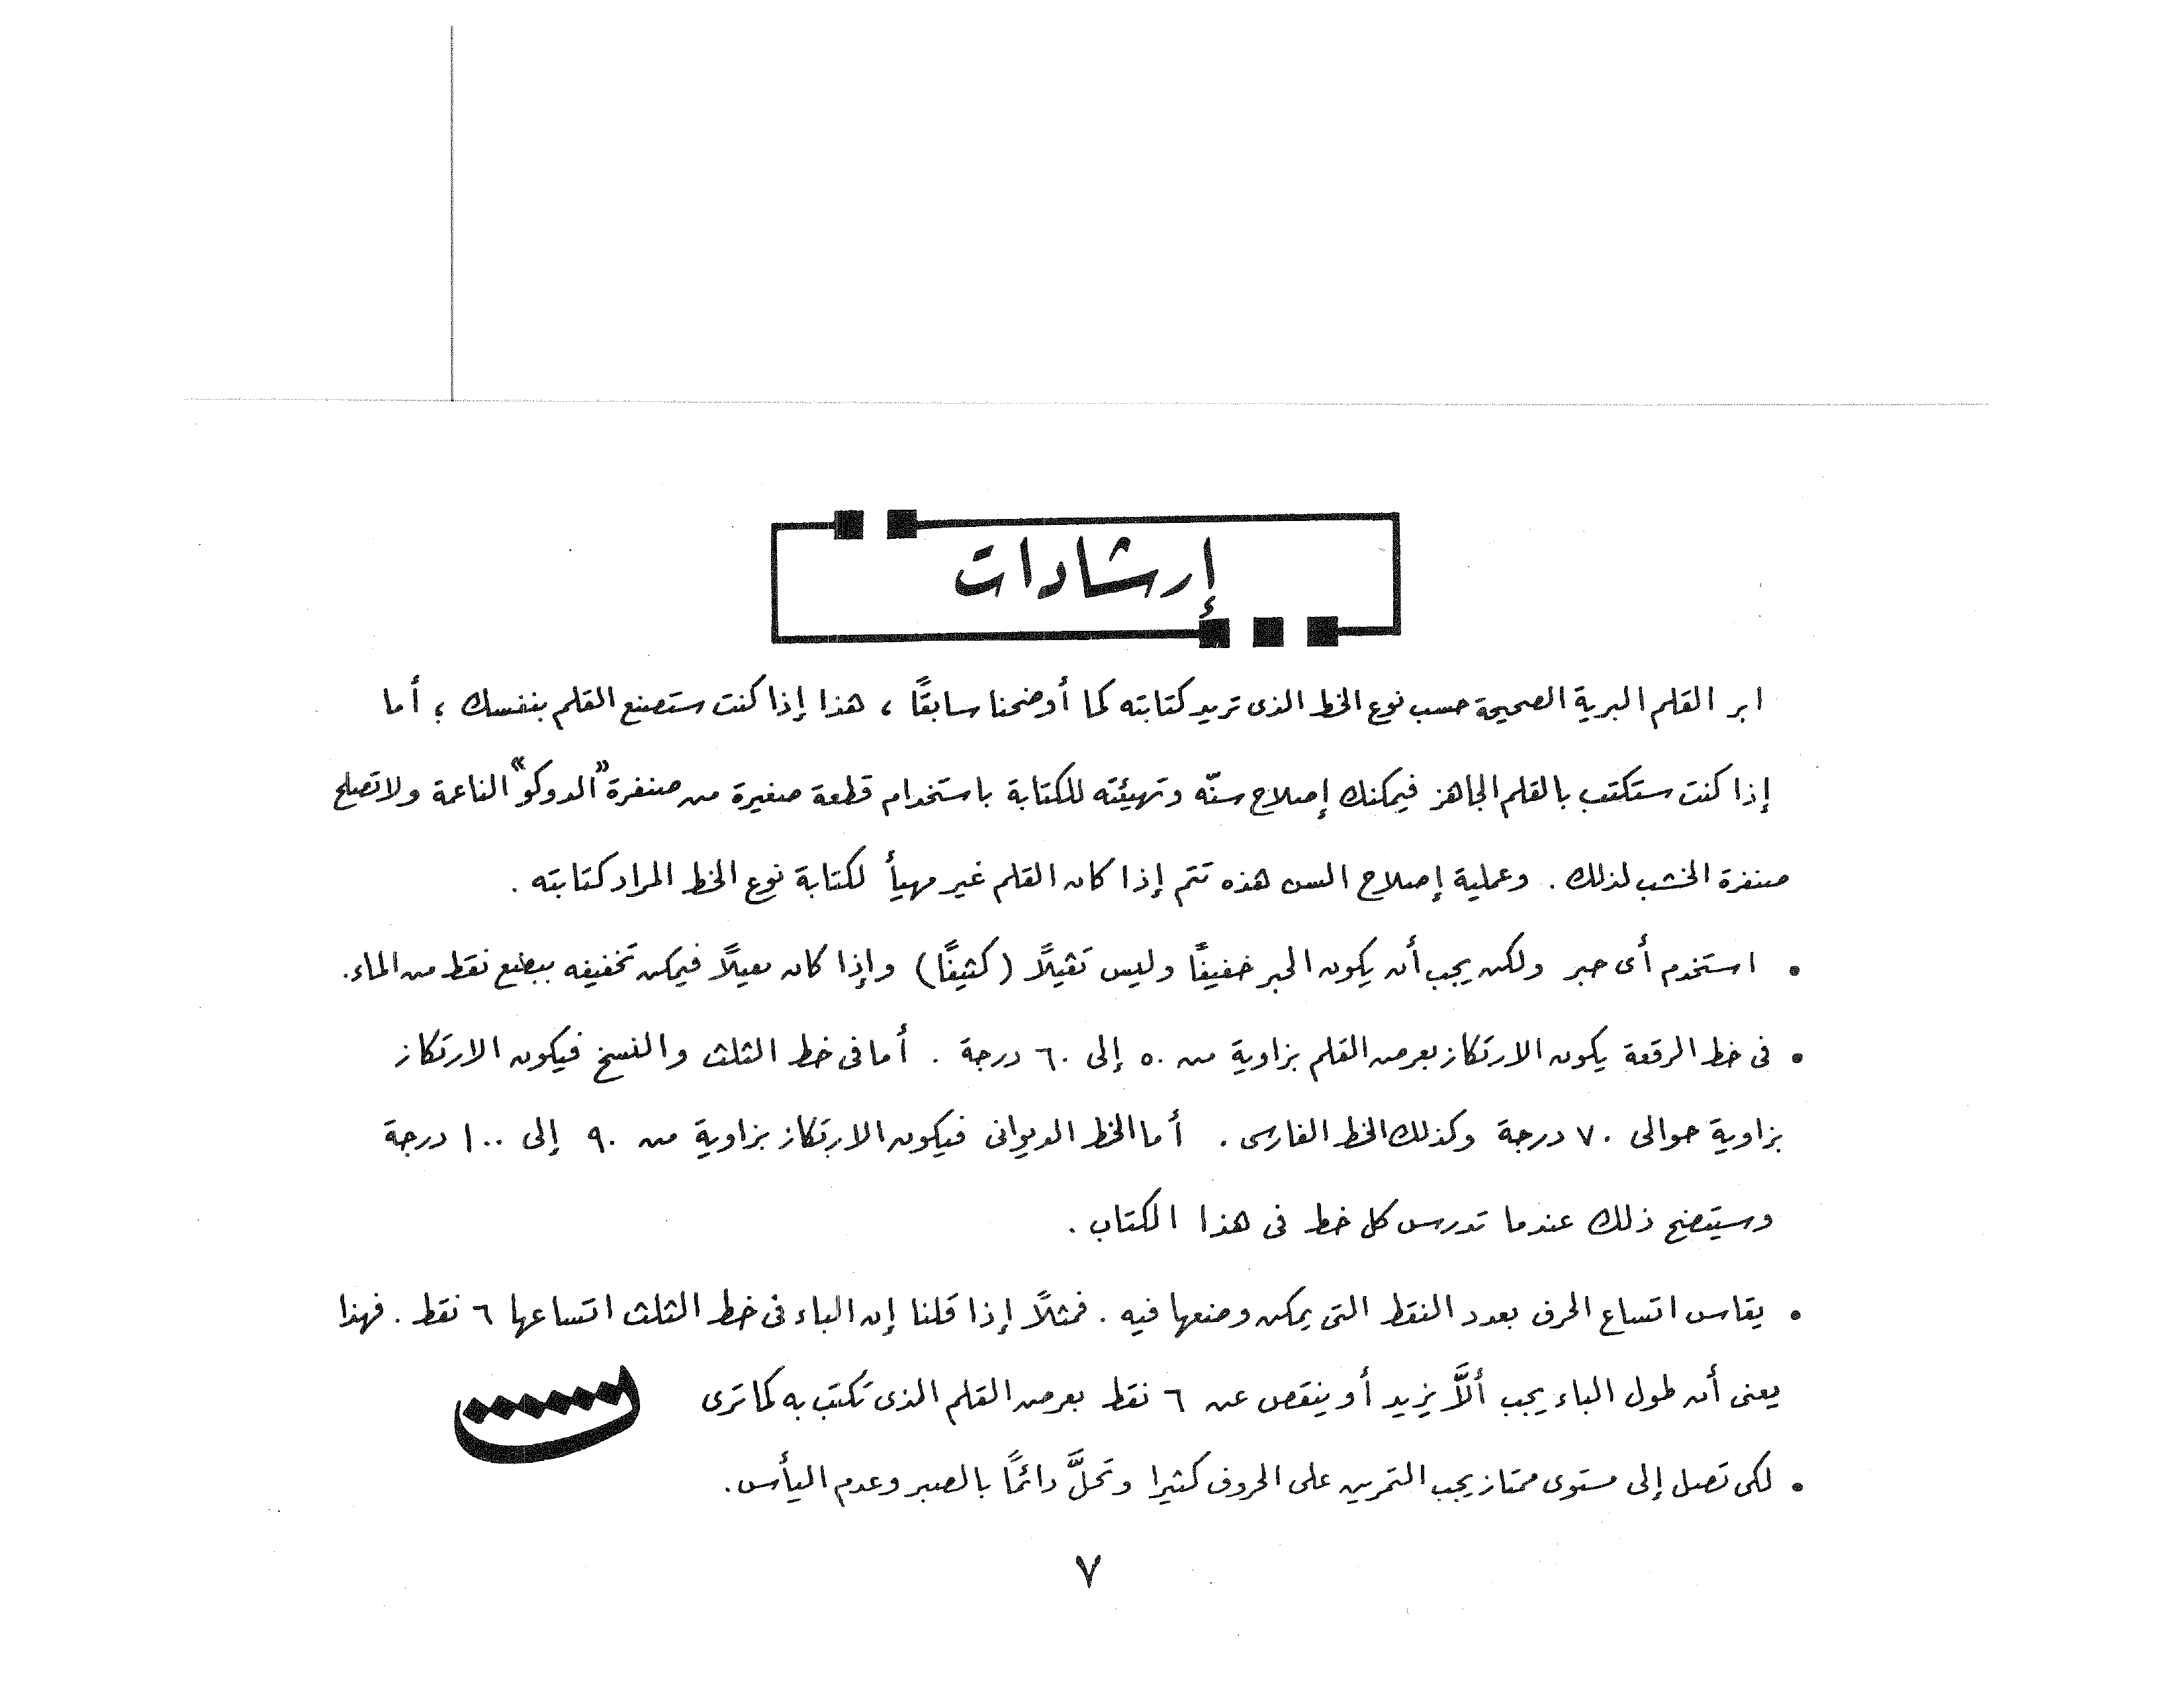 إرشادات
ابر القلم البرية الصحيحة حسب نوع الخط الذى تريد كتابته كما أوضحنا سابقًا ، هذا إذا كنت ستصنع القلم بنفسك ؛ أما
إذا كنت ستكتب بالقلم الجاهز فيمكنك إصلاح سنّه وتهيئته للكتابة باستخدام قطعة صغيرة من صنفرة "الدوكو" الناعمة ولا تصلح
صنفرة الخشب لذلك . وعملية إصلاح السن هذه تتم إذا كان القلم غير مهيأ لكتابة نوع الخط المراد كتابته .
• استخدم أى حبر ولكن يجب أن يكون الحبر خفيفًا وليس ثقيلًا (كثيفًا) وإذا كان ثقيلًا فيمكن تخفيفه ببضع نقط من الماء.
• فى خط الرقعة يكون الارتكاز بعرض القلم بزاوية من ٥٠ إلى ٦٠ درجة . أما فى خط الثلث والنسخ فيكون الارتكاز
بزاوية حوالى ٧٠ درجة وكذلك الخط الفارسى . أما الخط الديوانى فيكون الارتكاز بزاوية من ٩٠ إلى ١٠٠ درجة
وسيتضح ذلك عندما تدرس كل خط فى هذا الكتاب .
• يقاس اتساع الحرف بعدد النقط التى يمكن وضعها فيه . فمثلًا إذا قلنا إن الباء فى خط الثلث اتساعها ٦ نقط . فهذا
يعنى أن طول الباء يجب ألَّا يزيد أو ينقص عن ٦ نقط بعرض القلم الذى تكتب به كما ترى
• لكى تصل إلى مستوى ممتاز يجب التمرين على الحروف كثيرا وتحلَّ دائمًا بالصبر وعدم اليأس .
٧